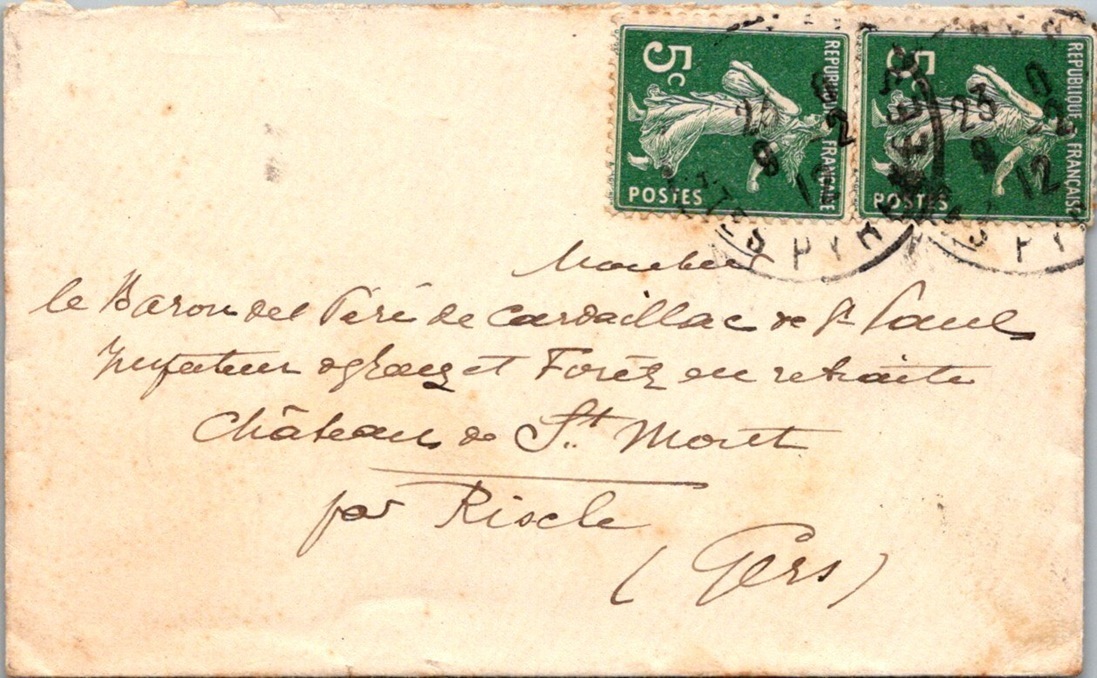 5c
REPUBLIQUE FRANÇAISE
POSTES
5c
REPUBLIQUE FRANÇAISE
POSTES
23
9
12
Monsieur
le Baron del Péré de Cardaillac de St Paul
et Forêts en retraite
Château de St Mont
par Riscle
(Gers)